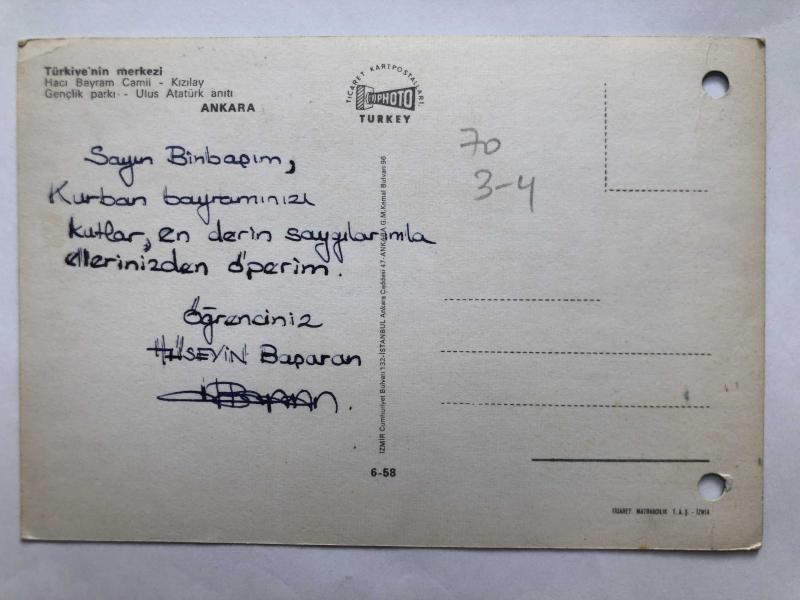 Türkiye'nin merkezi
Hacı Bayram Camii - Kızılay
Gençlik parkı - Ulus Atatürk anıtı
ANKARA
TİCARET KARTPOSTALLARI
PHOTO
TURKEY
Sayın Binbaşım,
Kurban bayramınızı
kutlar, en derin saygılarımla
ellerinizden öperim.
Öğrenciniz
HÜSEYİN Başaran
70
3-4
İZMİR Cumhuriyet Bulvarı 132-İSTANBUL Ankara Caddesi 47-ANKARA G.M.Kemal Bulvarı 96
6-58
TİCARET MATBAACILIK T.A.Ş. - İZMİR